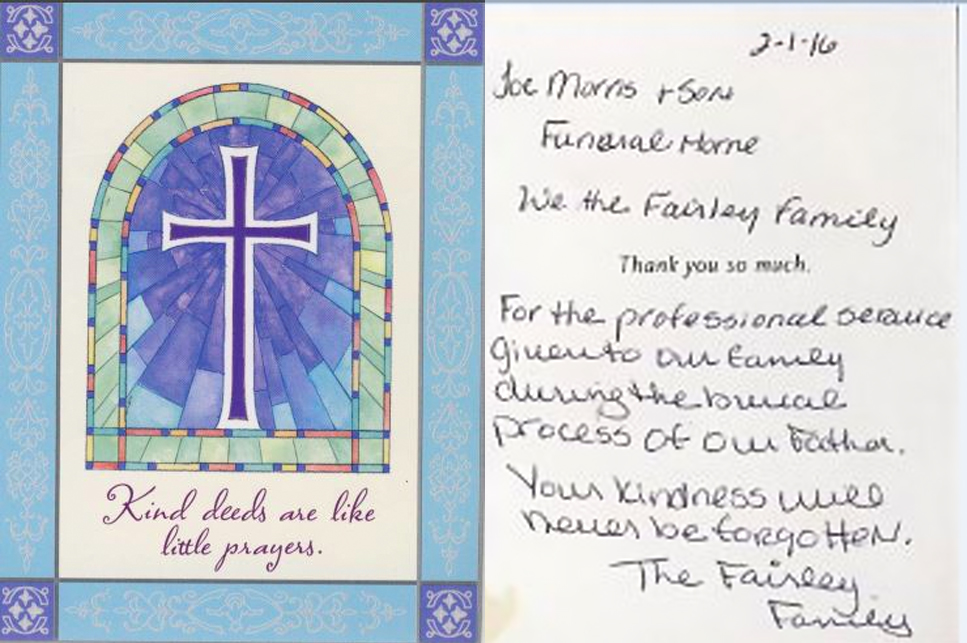 Kind deeds are like
little prayers.
2-1-16
Joe Morris + Son
Funeral Home
We the Fairley Family
Thank you so much.
For the professional service
given to our family
during the burial
process of our Father.
Your kindness will
never be forgotten.
The Fairley
Family